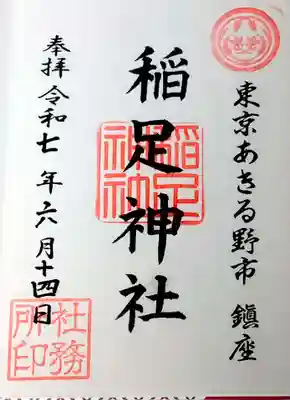 東京あきる野市 鎮座
稲足神社
奉拝 令和七年六月十四日
稲足
神社
社務
所印